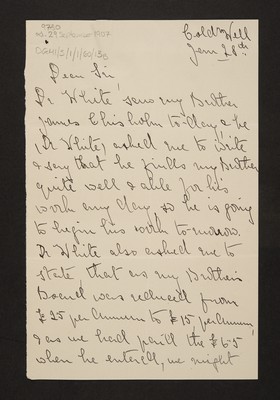 DGH1/5/1/1/80/13b
Coldm Well
Jan 28th
Dear Sir
Dr White saw my Brother
James Chisholm to day & he
(Dr White) asked me to write
& say that he finds my Brother
quite well & able for his
work any day so he is going
to begin his work to-morrow.
Dr White also asked me to
state, that as my Brothers
Board was reduced from
£25 per annum to £15 per annum,
& as we had paid the £6-5
when he entered, we might